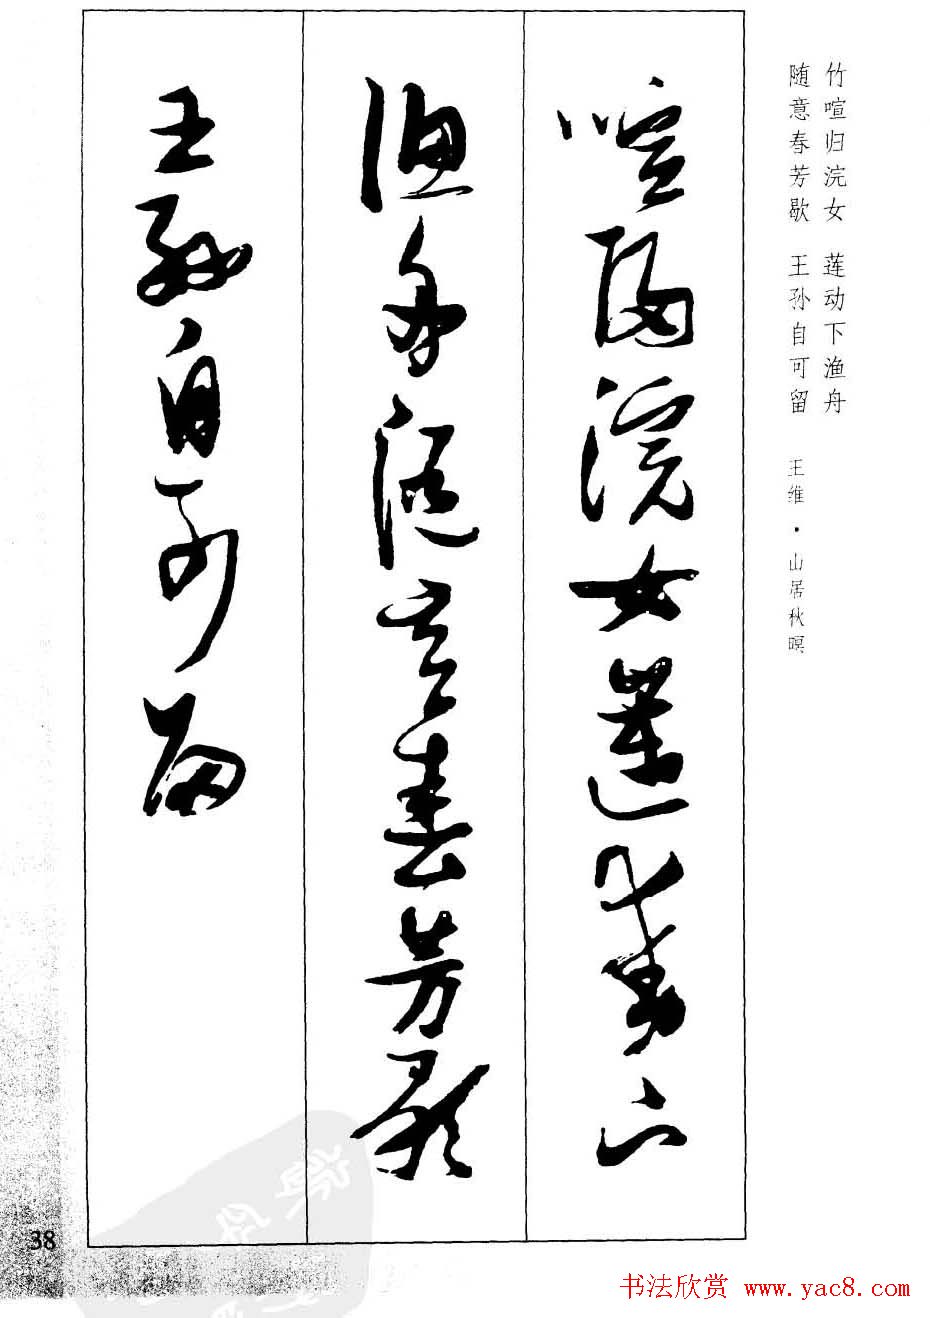 竹喧归浣女　莲动下渔舟
随意春芳歇　王孙自可留　王维·山居秋暝
喧歸浣女蓮動下
漁舟随意春芳歇
王孫自可留
38
书法欣赏 www.yac8.com